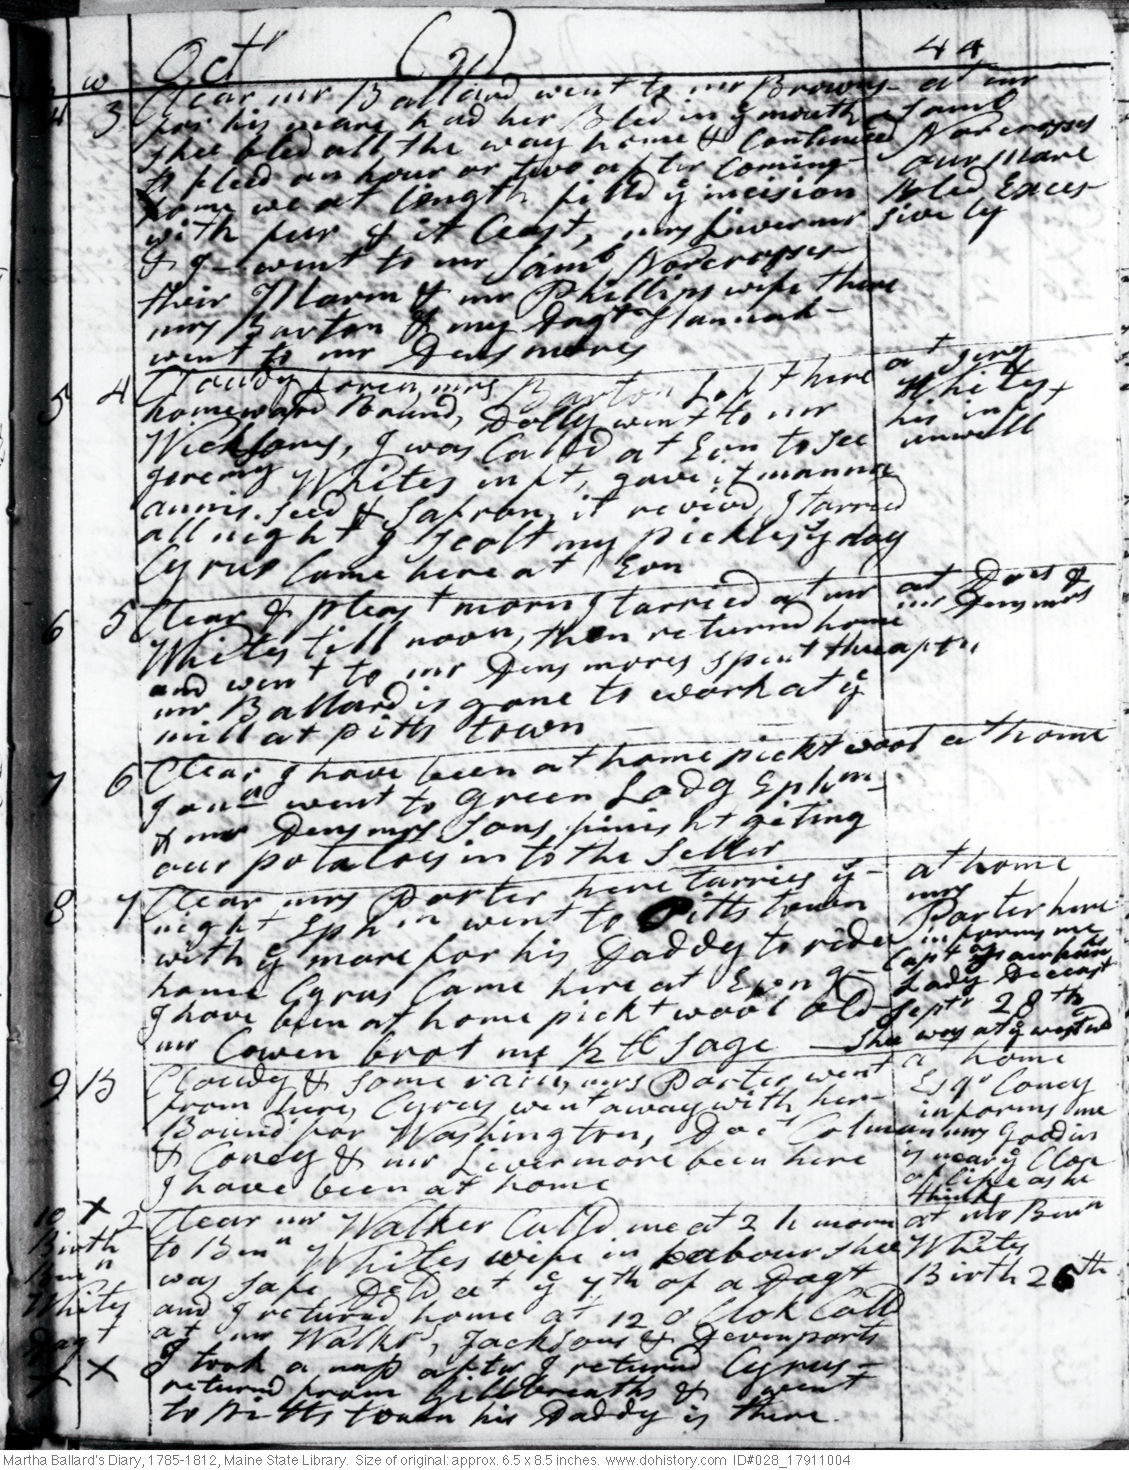 Octr (21) 44
w
4 3 Clear mr Ballard went to mr Browns at mr
for his meare had her Bled in ye mouth Samb
shee bled all the way home & Continued Norcrosses
to bleed an hour or two after Coming our Mare
home we at length filld ye incision Bled Exces
with fur & it Ceast, mrs Livermr sively
& I went to mr Samb Norcrosses
their Marm & mr Phillips wife there
mrs Barton & my Dagt Hannah
went to mr Densmores
5 4 Cloudy foren, mrs Barton Left here at Jery
homeward Bound, Dolly went to mr Whites,
Wicksons, I was Calld at Evn to see his inft
Jeremy Whites inft, gave it manna unwell
annis seed & Safron, it revivd, I tarried
all night I scolt my pickles ys day
Cyrus Came here at Evn
6 5 Clear & pleast morn I tarried at mr at Does &
Whites till noon, then returnd home mr Densmrs
and went to mr Densmores spent there aftn
mr Ballard is gone to work at ye
mill at pitts town
7 6 Clear I have been at home pickt wool at home
went to green Lodg Ephm
& mr Densmrs Sons finisht giting
our potatoes into the Seller
8 7 Clear mrs Porter here tarries ys at home
night Ephm went to Pitts town mrs
with ye mare for his Daddy to ride Porter here
home Cyrus Came here at Evng informs me
Capt
Lady Deceast
I have been at home pickt wool old Septr 28th
mr Cowen brot me 1/2 lb Sage She was at ye westwd
9 B Cloudy & some rain, mrs Porter went at home
from here, Cyrus went away with her Esqr Coney
Bound for Washington, Doct Colman informs me
mrs Goodin
& Coney & mr Livermore been here is near ye Close
I have been at home of life as he
thinks
10 x 2 Clear mr Walker Calld me at 2 h morn at Mr Benn
Birth to Bmn Whites wife in Labour shee Whites
Bmn was safe Deld at ye 7th of a Dagt Birth 26th
Whites and I returned home at 12 o Clok Calld
Dagt at mr Walkrs, Jacksons & Devenports
x x I took a nap after I returnd Cyrus
returnd from Gillbreaths & went
to Pitts town his Daddy is there
Martha Ballard's Diary, 1785-1812, Maine State Library. Size of original: approx. 6.5 x 8.5 inches. www.dohistory.com ID#028_17911004